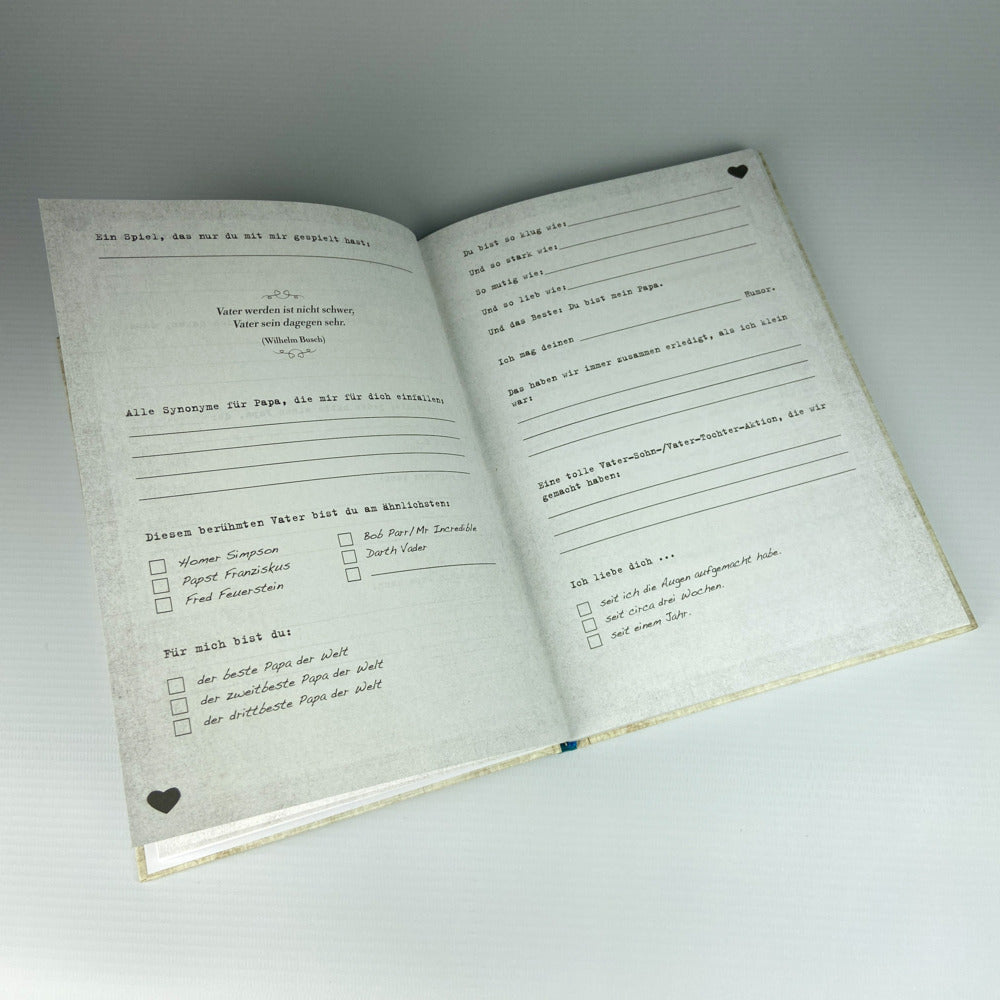 Ein Spiel, das nur du mit mir gespielt hast:
Vater werden ist nicht schwer,
Vater sein dagegen sehr.
(Wilhelm Busch)
Alle Synonyme für Papa, die mir für dich einfallen:
Diesem berühmten Vater bist du am ähnlichsten:
Homer Simpson
Papst Franziskus
Fred Feuerstein
Bob Parr/Mr Incredible
Darth Vader
Für mich bist du:
der beste Papa der Welt
der zweitbeste Papa der Welt
der drittbeste Papa der Welt
Du bist so klug wie:
Und so stark wie:
So mutig wie:
Und so lieb wie:
Und das Beste: Du bist mein Papa.
Ich mag deinen Humor.
Das haben wir immer zusammen erledigt, als ich klein
war:
Eine tolle Vater-Sohn-/Vater-Tochter-Aktion, die wir
gemacht haben:
Ich liebe dich ...
seit ich die Augen aufgemacht habe.
seit circa drei Wochen.
seit einem Jahr.